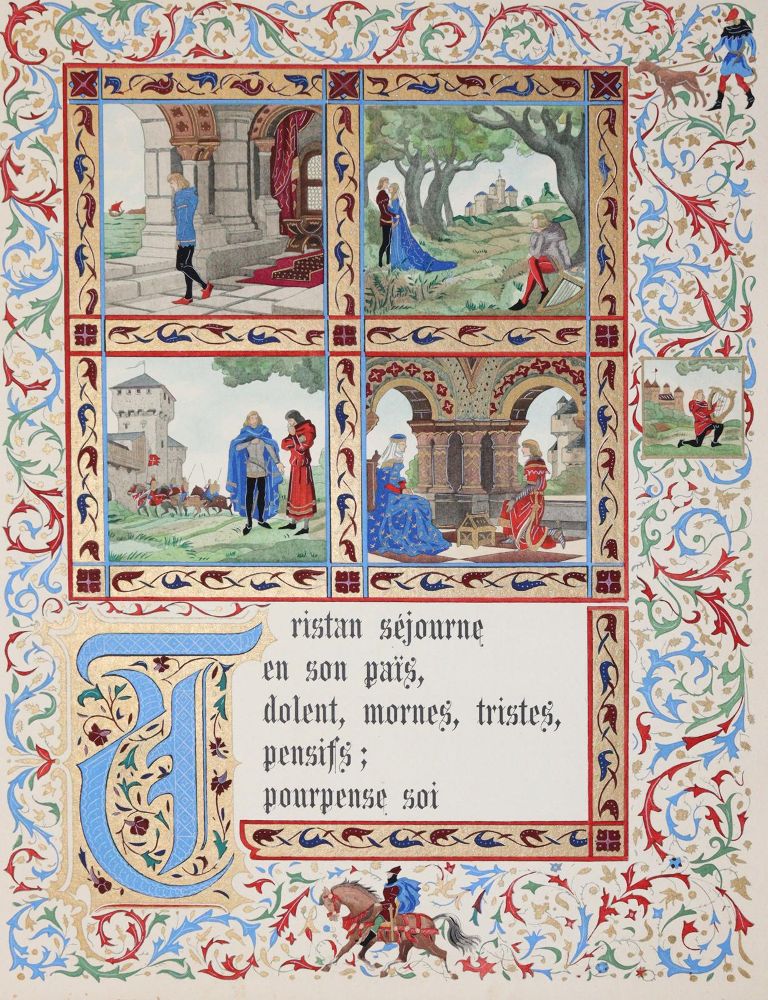 Tristan séjourne
en son païs,
dolent, mornes, tristes,
pensifs ;
pourpense soi